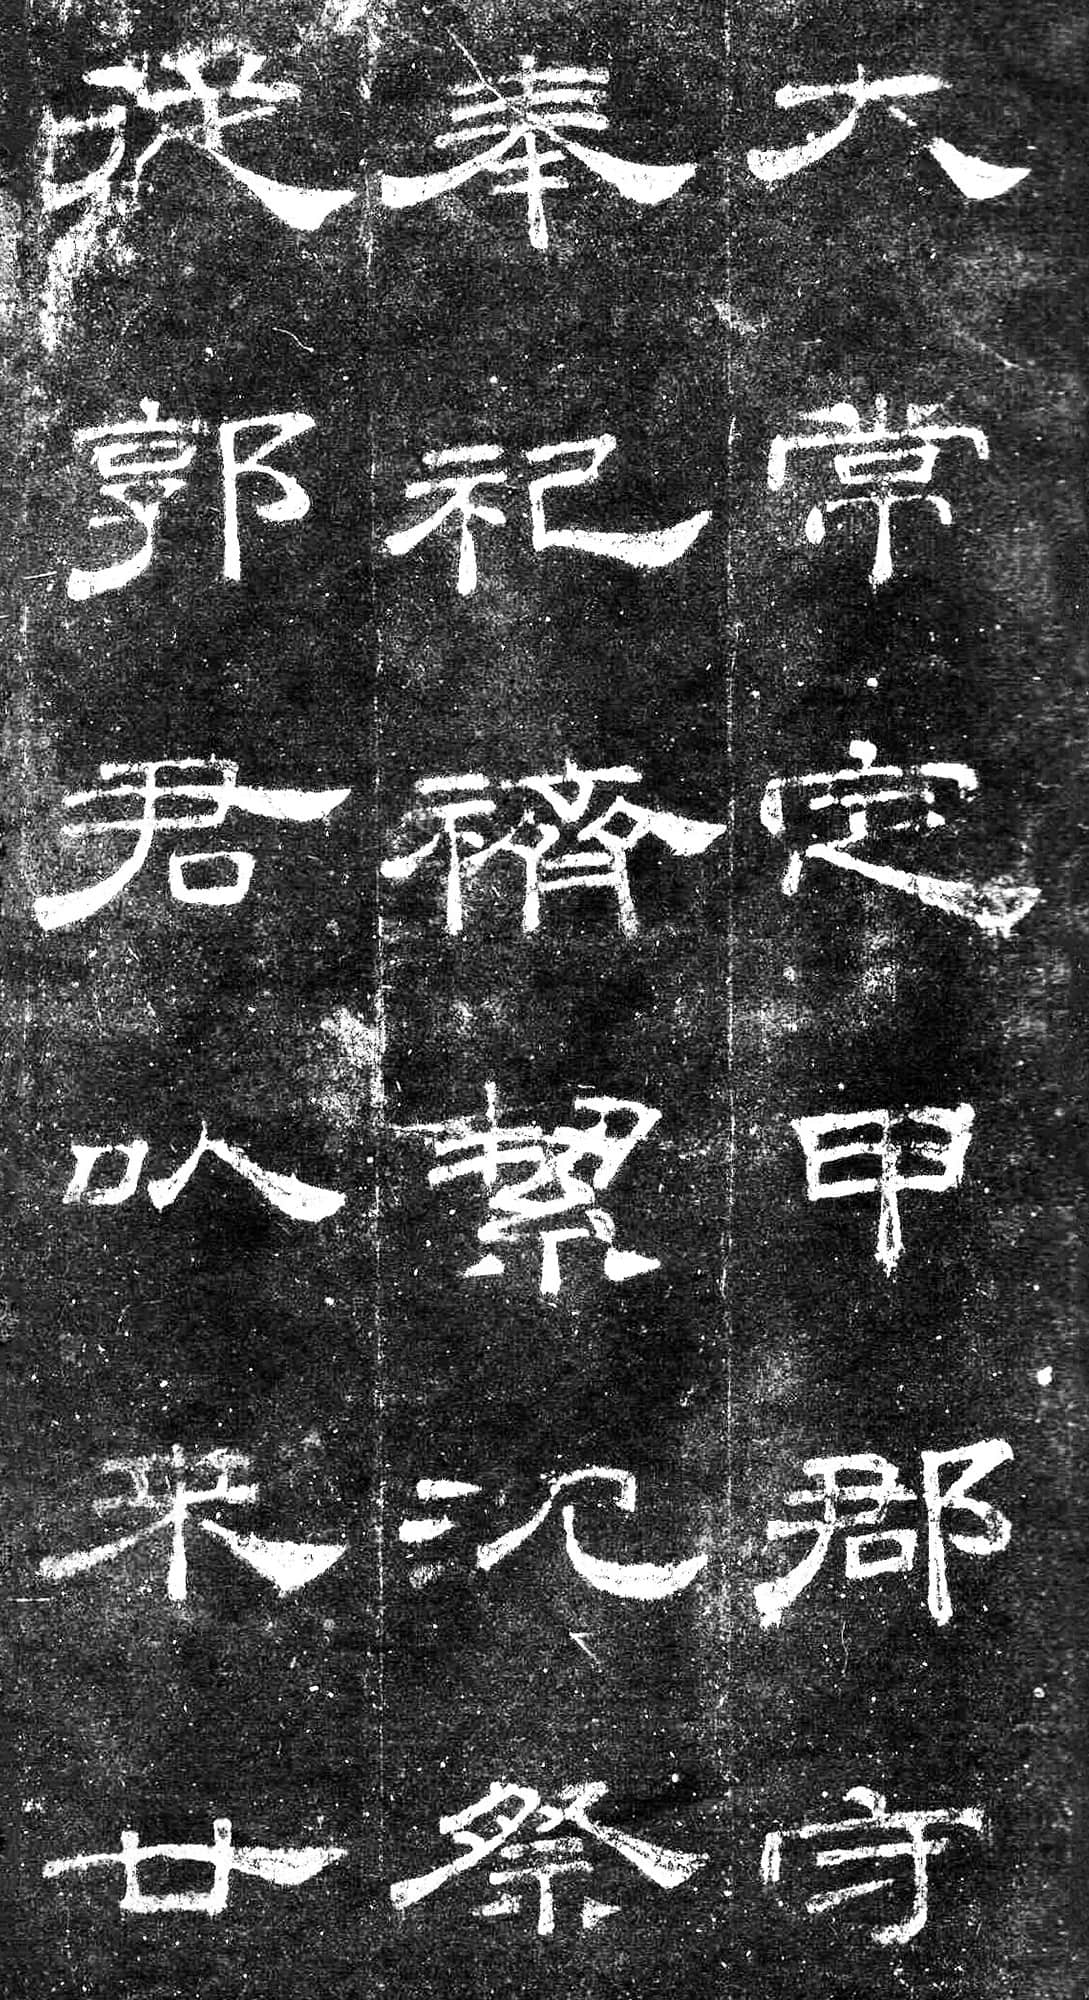 大常定甲郡守
奉祀齋絜沈祭
從郭君以来廿